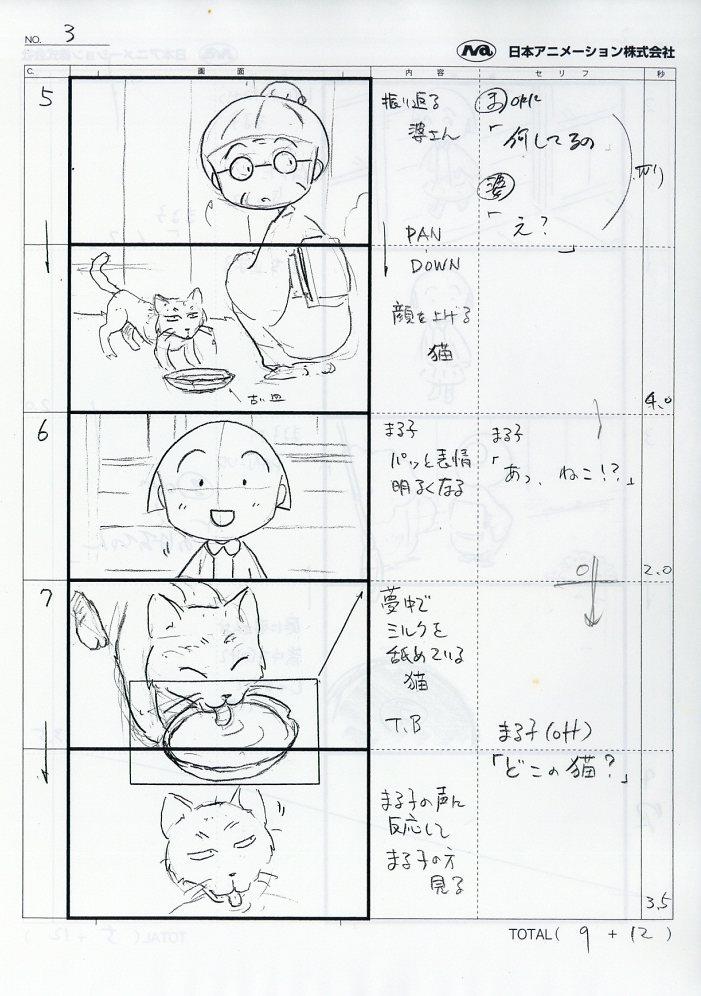 NO. 3
Na 日本アニメーション株式会社
C. 画面 内容 セリフ 秒
5
振り返る
婆さん
PAN
DOWN
顔を上げる
猫
古い皿
ま OFFに
「何してるの
婆
「え?
」
4.0
6
まる子
パッと表情
明るくなる
まる子
「あっ、ねこ!?」
2.0
7
夢中で
ミルクを
舐めている
猫
T.B
まる子(off)
「どこの猫?」
まる子の声に
反応して
まる子の方
見る
3.5
TOTAL( 9 + 12 )